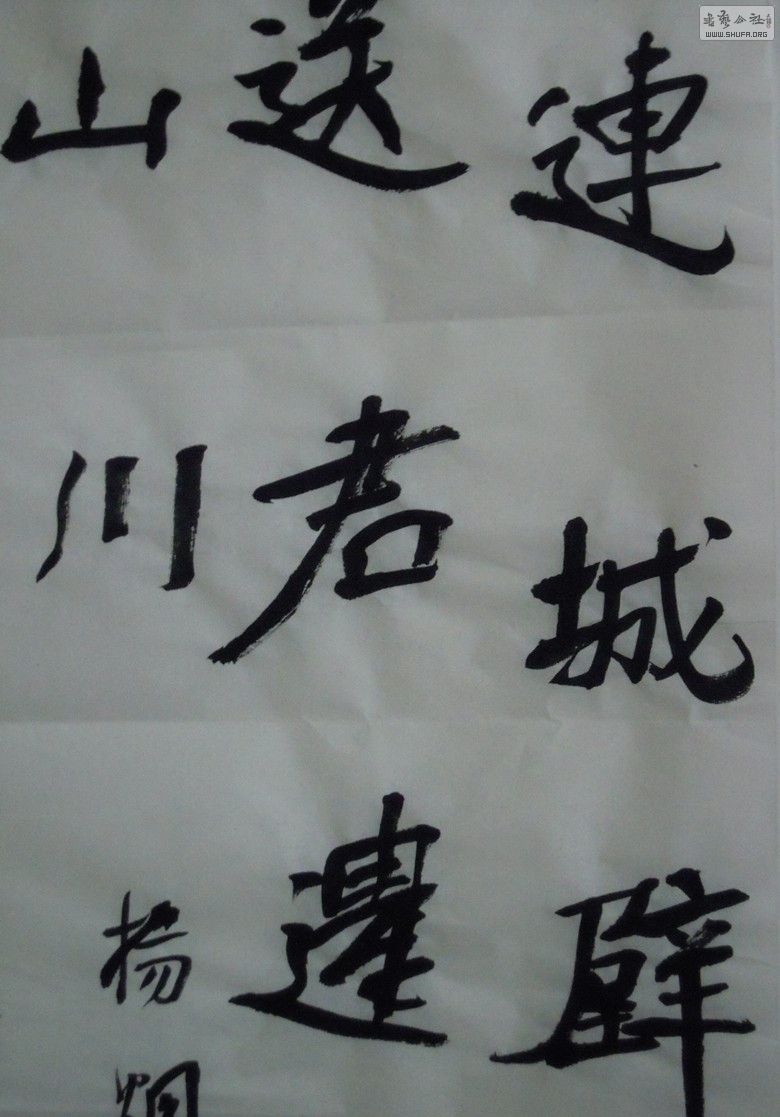 書藝公社
WWW.SHUFA.ORG
連城璧
送君
山川
揚炯